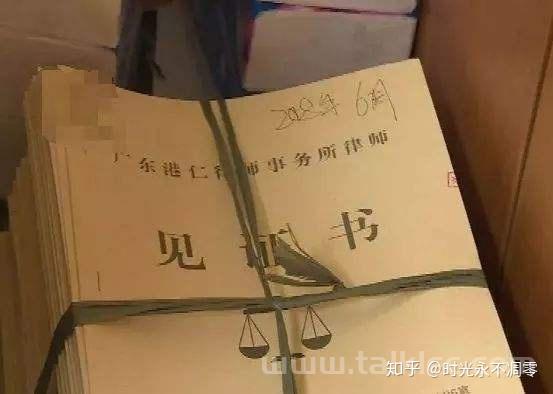 2018年 6月
广东港仁律师事务所律师
见证书
www.talkl
知乎 @时光永不凋零